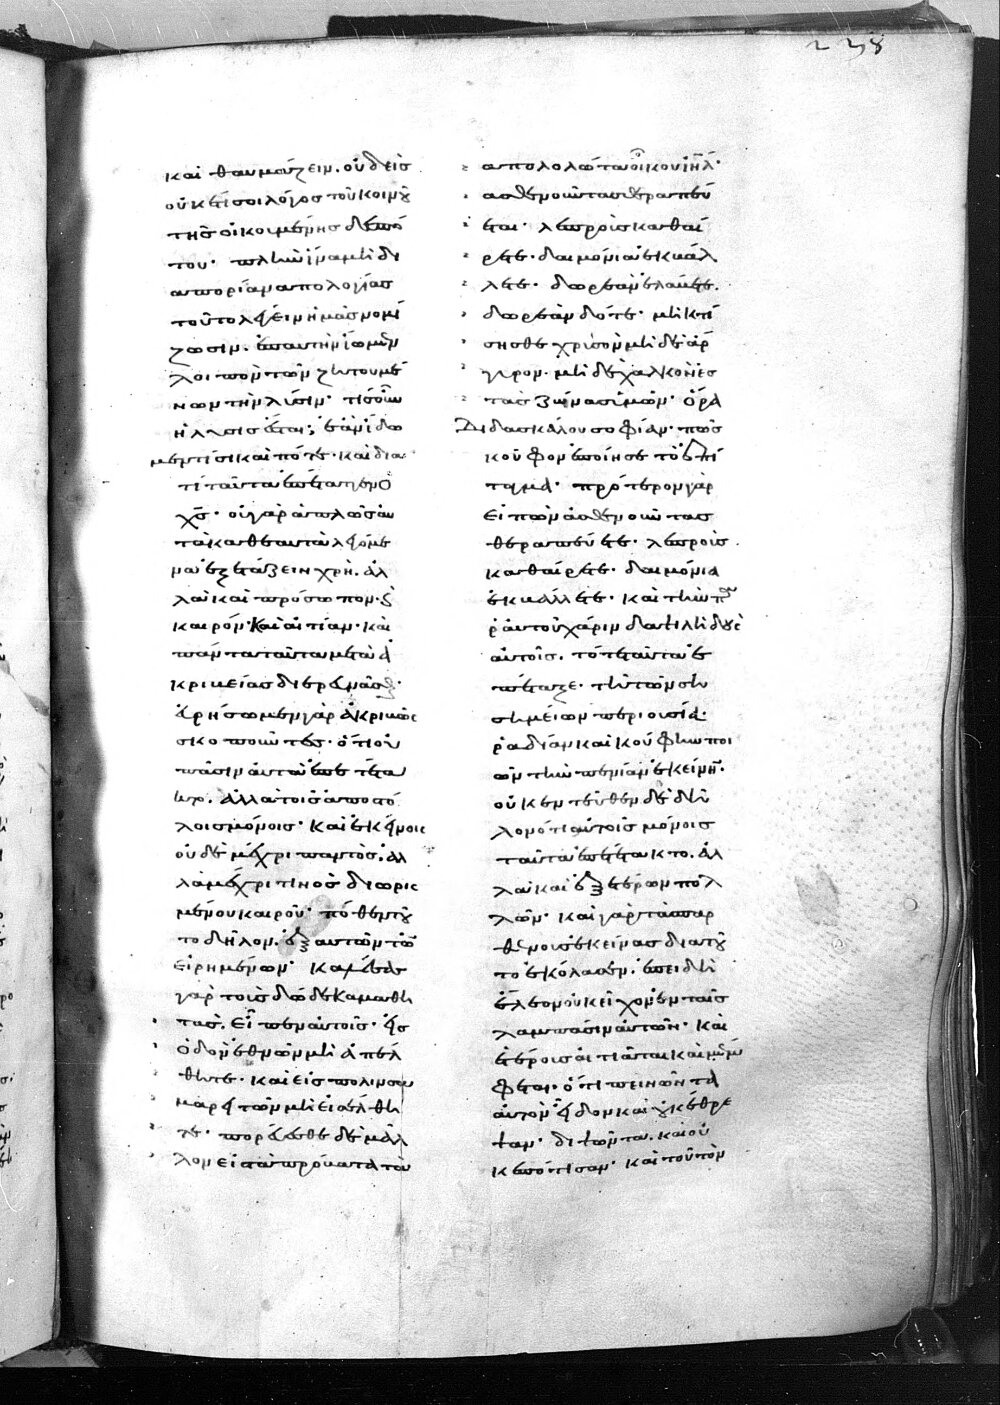 238
καὶ θαυμάζειν. οὐδεὶς
οὐκέτι σοι λόγος τοῦ κοινοῦ
τῆς οἰκουμένης δεσπό
του. πλὴν ἵνα μὴ δι
ἀπορίαν ἀπολογίας
τοῦτο λέγειν ἡμᾶς νομί
ζωσιν. ἐπ αὐτὴν ἴωμεν
λοιπὸν τῶν ζητουμέ
νων τὴν λύσιν. τίς οὖν
ἡ λύσις ἔσται; ἐὰν ἴδω
μεν τίσι καὶ πότε. καὶ δια
τί ταῦτα ἐπέταττεν ὁ
χς. οὐ γὰρ ἁπλῶς ἂν
τὰ καθ ἑαυτὰ λεγόμε
να ἐξετάζειν χρὴ. ἀλ
λὰ καὶ πρόσωπον. καὶ
καιρόν. καὶ αἰτίαν. καὶ
πάντα ταῦτα μετὰ ἀ
κριβείας διερευνᾶσθαι.
εὑρήσομεν γὰρ ἀκριβῶς
σκοποῦντες. ὅτι οὐ
πᾶσιν αὐτὰ ἐπετέτα
κτο. ἀλλὰ τοῖς ἀποστό
λοις μόνοις. καὶ ἐκείνοις
οὐδὲ μέχρι παντὸς. ἀλ
λὰ μέχρι τινὸς διωρισ
μένου καιροῦ. πόθεν τοῦ
το δῆλον. ἐξ αὐτῶν τῶν
εἰρημένων. καλέσας
γὰρ τοὺς δώδεκα μαθη
τὰς. εἶπεν αὐτοῖς. εἰς
ὁδὸν ἐθνῶν μὴ ἀπέλ
θητε. καὶ εἰς πόλιν σα
μαρειτῶν μὴ εἰσέλθη
τε. πορεύεσθε δὲ μᾶλ
λον εἰς τὰ πρόβατα τὰ
ἀπολωλότα οἴκου ιηλ.
ἀσθενοῦντας θεραπεύ
εται. λεπροὺς καθαί
ρετε. δαιμόνια ἐκβάλ
λετε. δωρεὰν ἐλάβετε.
δωρεὰν δότε. μὴ κτή
σησθε χρυσὸν μὴ δὲ ἄρ
γυρον. μὴ δὲ χαλκὸν εἰς
τὰς ζώνας ὑμῶν. ὅρα
διδασκάλου σοφίαν. πῶς
κοῦφον ἐποίησε τὸ ἐπί
ταγμα. πρότερον γὰρ
εἰπὼν ἀσθενοῦντας
θεραπεύετε. λεπροὺς
καθαίρετε. δαιμόνια
ἐκβάλλετε. καὶ τὴν πα
ρ αὐτοῦ χάριν δαψιλῆ δοὺς
αὐτοῖς. τότε ταῦτα ἐ
πέταξε. τῇ τῶν ση
σημείων περιουσίᾳ.
ῥᾳδίαν καὶ κούφην ποι
ῶν τὴν πενίαν ἐκείνην.
οὐκ ἐντεῦθεν δὲ δῆ
λον ὅτι αὐτοῖς μόνοις
ταῦτα ἐπετέτακτο. ἀλ
λὰ καὶ ἐξ ἑτέρων πολ
λῶν. καὶ γὰρ τὰς παρ
θένους ἐκείνας διὰ τοῦ
το ἐκόλασεν. ἐπειδὴ
ἔλαιον οὐκ εἶχον ἐν ταῖς
λαμπάσιν αὐτῶν. καὶ
ἑτέροις αἰτιᾶται καὶ μέμ
φεται. ὅτι πεινῶντα
αὐτὸν εἶδον καὶ οὐκ ἔθρε
ψαν. διψῶντα. καὶ οὐ
κ ἐπότισαν. καὶ τοῦτον